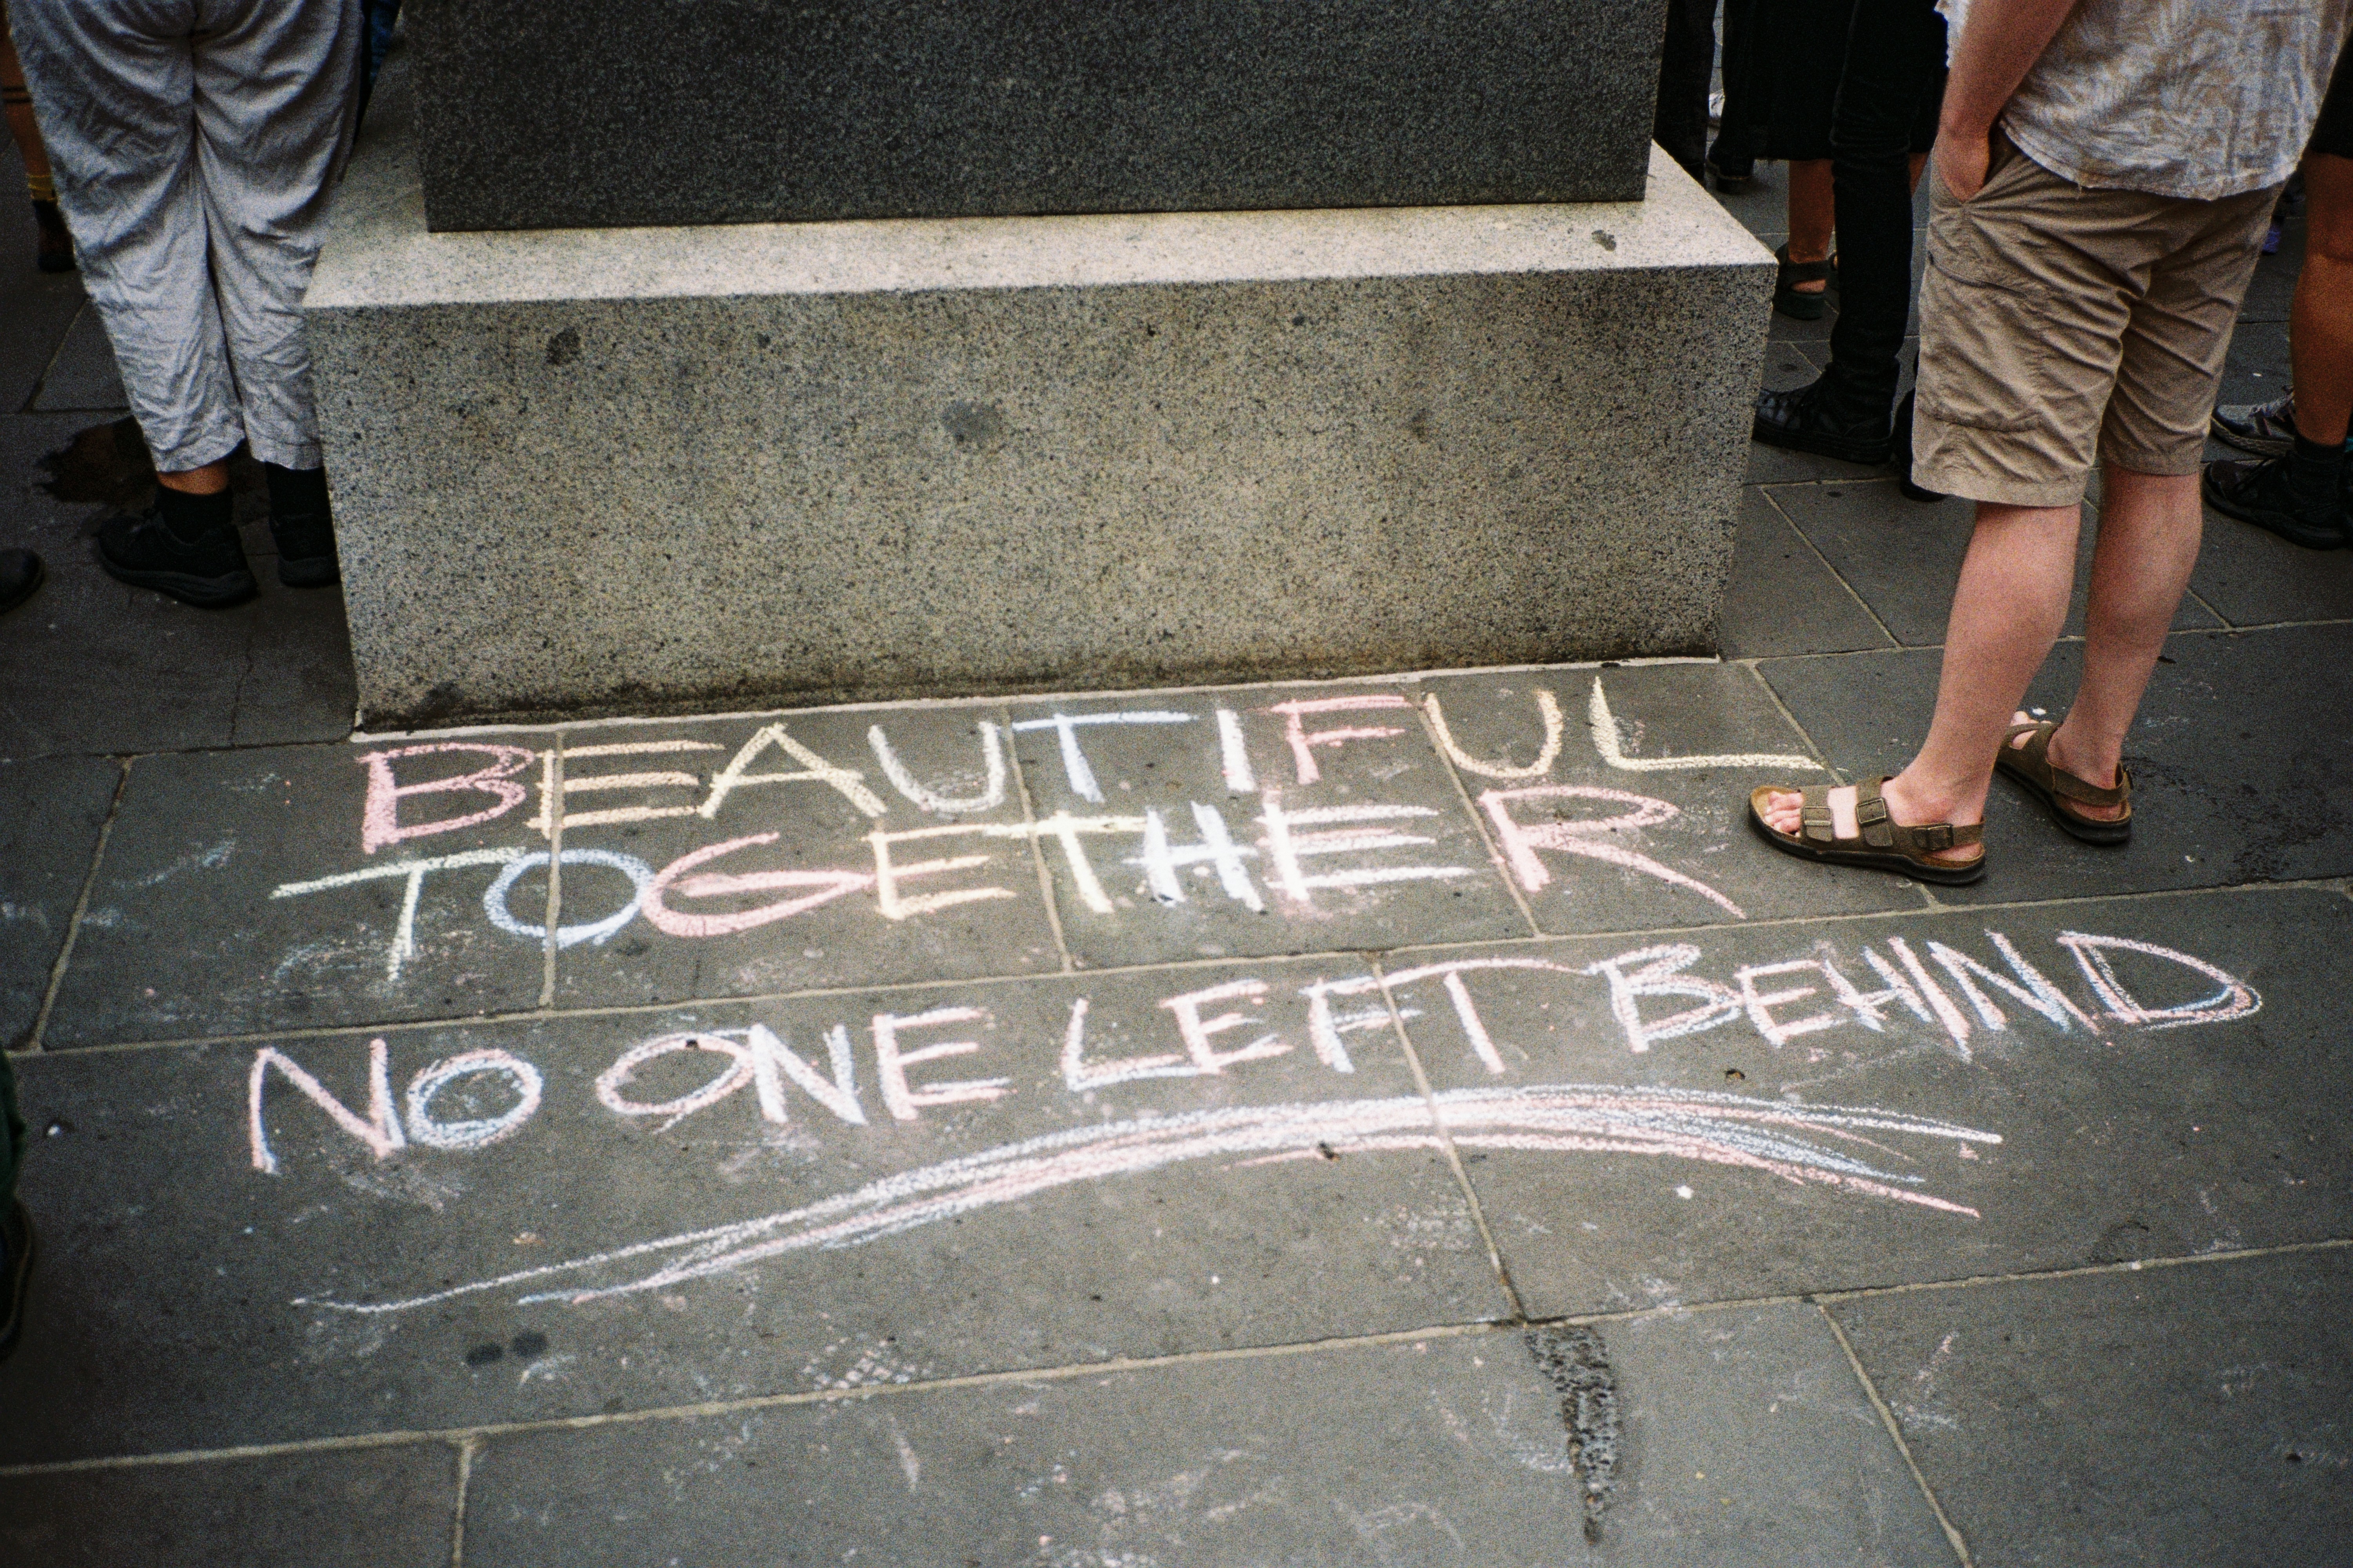 BEAUTIFUL
TOGETHER
NO ONE LEFT BEHIND